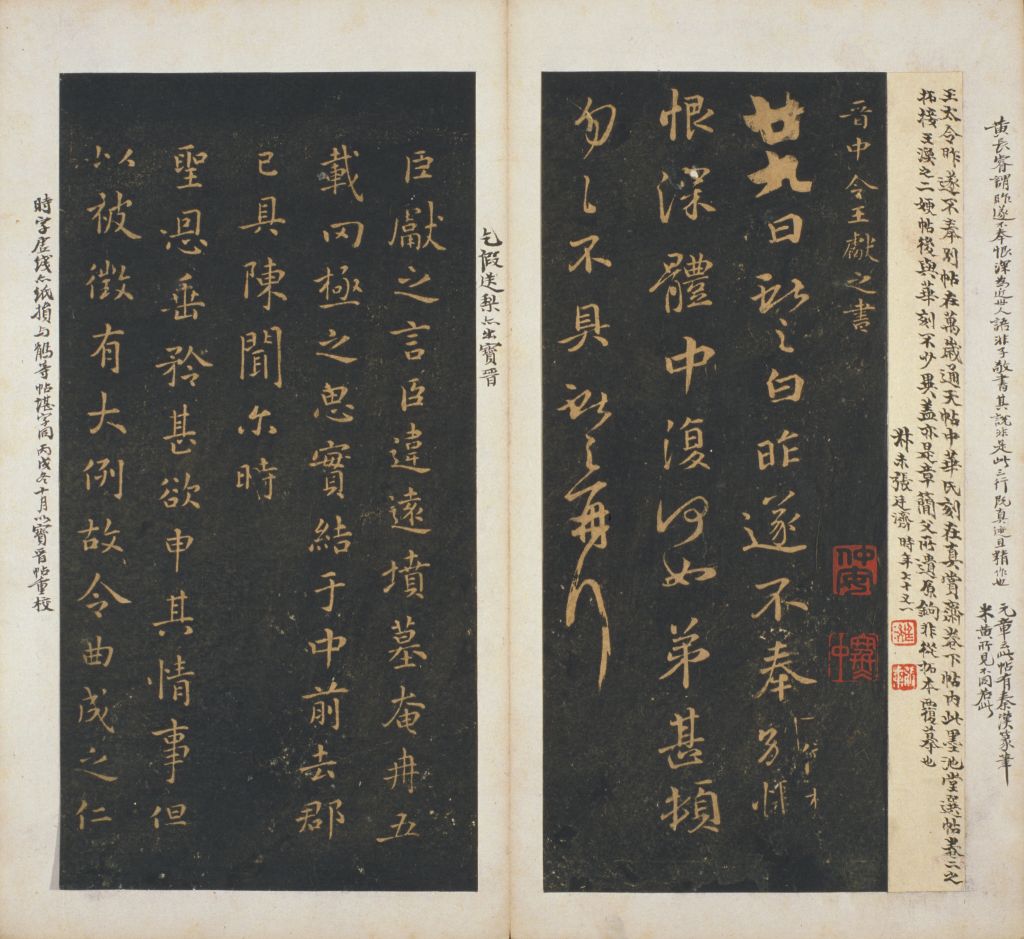 黃長睿謂昨遂不奉恨深為近世人語非子敬書其說非是此三行既真迹且精作也
元章云此帖有秦漢篆筆
米黃所見不同若此
王大令昨遂不奉別帖在萬歲通天帖中華氏刻在真賞齋卷下帖內此墨池堂選帖卷二之
拓接王渙之二嫂帖後與華刻不少異蓋亦是章簡父所遺原鉤非從拓本覆摹也
張廷濟時年七十又一
晉中令王獻之書
廿九日獻之白昨遂不奉別悵
恨深體中復何如弟甚頓
勿勿不具獻之再行
乞假送梨亦出寶晉
臣獻之言臣違遠墳墓奄冉五
載罔極之思實結于中前去郡
已具陳聞尓時
聖恩垂矜甚欲申其情事但
以被徵有大例故令曲成之仁
時字居綫亦紙損与鵝等帖堪字同丙戌冬十月以寶晉帖重校